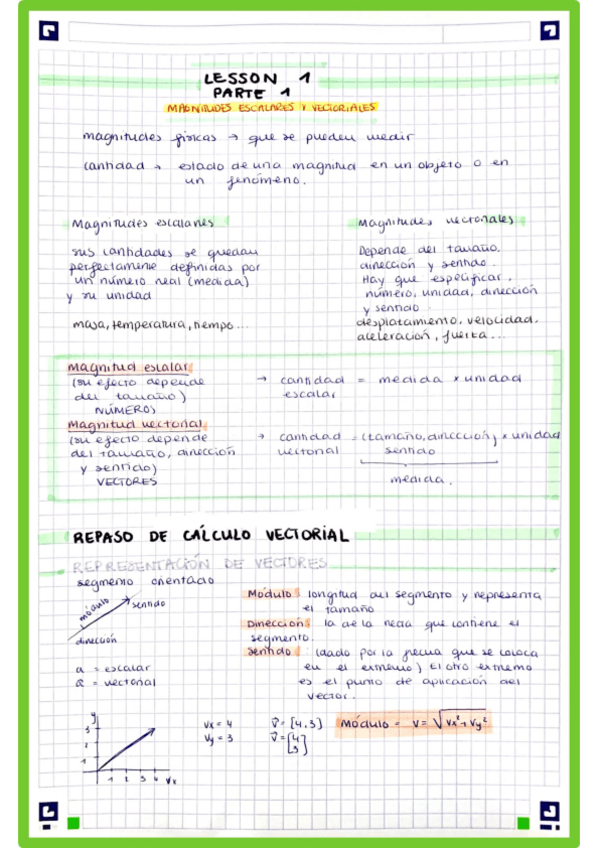 LESSON 1
PARTE 1
MAGNITUDES ESCALARES Y VECTORIALES
magnitudes físicas → que se pueden medir
cantidad → estado de una magnitud en un objeto o en
un fenómeno.
Magnitudes escalares
sus cantidades se quedan
perfectamente definidas por
un número real (medida)
y su unidad
masa, temperatura, tiempo...
Magnitudes vectoriales
Depende del tamaño,
dirección y sentido.
Hay que especificar,
número, unidad, dirección
y sentido
desplazamiento, velocidad,
aceleración, fuerza...
Magnitud escalar
(su efecto depende
del tamaño)
NÚMEROS
→ cantidad = medida x unidad
escalar
Magnitud vectorial
(su efecto depende
del tamaño, dirección
y sentido)
VECTORES
→ cantidad = (tamaño, dirección, x unidad
vectorial sentido
medida.
REPASO DE CÁLCULO VECTORIAL
REPRESENTACIÓN DE VECTORES
segmento orientado
módulo
sentido
dirección
a = escalar
a⃗ = vectorial
Módulo: longitud del segmento y representa
el tamaño
Dirección: la de la recta que contiene el
segmento.
Sentido: (dado por la flecha que se coloca
en el extremo) El otro extremo
es el punto de aplicación del
vector.
y
3
2
1
1 2 3 4 Vx
Vx = 4
Vy = 3
V⃗ = [4,3]
V⃗ = [4
3]
Módulo = V = √Vx² + Vy²